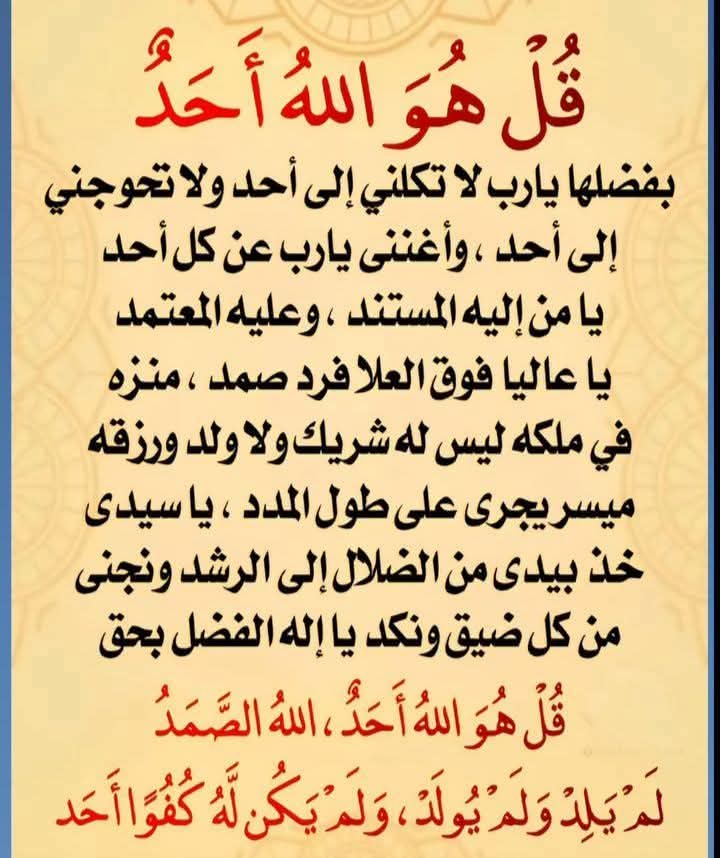 قُلْ هُوَ اللهُ أَحَدٌ
بفضلها يارب لا تكلني إلى أحد ولا تحوجني
إلى أحد ، وأغننى يارب عن كل أحد
يا من إليه المستند ، وعليه المعتمد
يا عاليا فوق العلا فرد صمد ، منزه
في ملكه ليس له شريك ولا ولد ورزقه
ميسر يجرى على طول المدد ، يا سيدى
خذ بيدى من الضلال إلى الرشد ونجنى
من كل ضيق ونكد يا إله الفضل بحق
قُلْ هُوَ اللهُ أَحَدٌ ، اللهُ الصَّمَدُ
لَمْ يَلِدْ وَلَمْ يُولَدْ ، وَلَمْ يَكُن لَّهُ كُفُوًا أَحَد